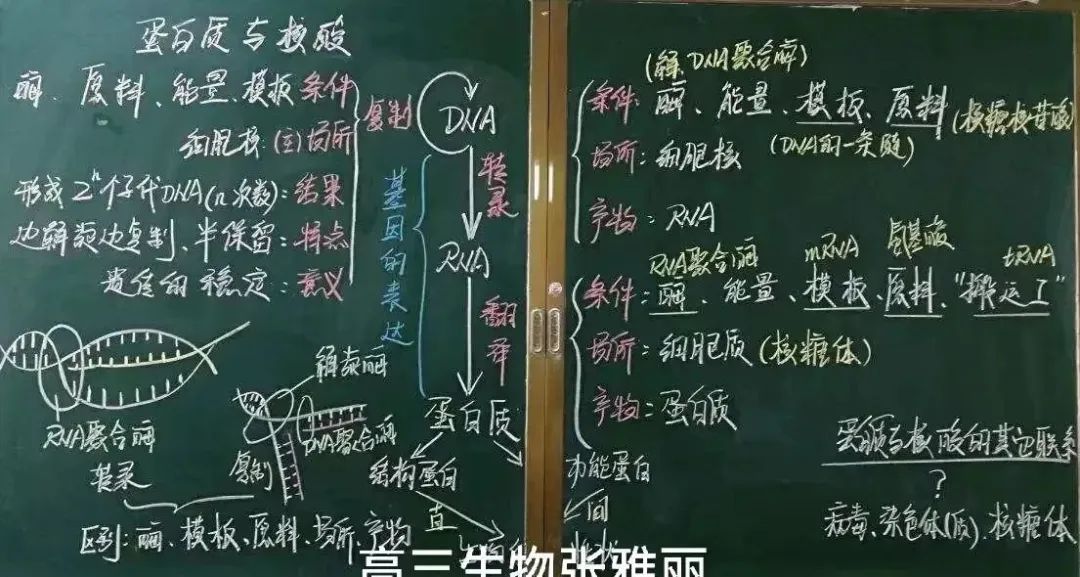 蛋白质与核酸
酶、原料、能量、模板 条件
细胞核(主) 场所
形成2ⁿ个子代DNA(n次数):结果
边解旋边复制、半保留:特点
遗传的稳定:意义
复制
DNA
转录
RNA
翻译
蛋白质
基因的表达
结构蛋白
功能蛋白
直
间
性状
RNA聚合酶
转录
解旋酶
DNA聚合酶
复制
区别:酶、模板、原料、场所、产物
(解、DNA聚合酶)
条件:酶、能量、模板、原料(核糖核苷酸)
(DNA的一条链)
场所:细胞核
产物:RNA
RNA聚合酶 mRNA 氨基酸 tRNA
条件:酶、能量、模板、原料、"搬运工"
场所:细胞质(核糖体)
产物:蛋白质
蛋白质与核酸的其它联系
?
病毒、染色体(质)、核糖体
高三生物张雅丽